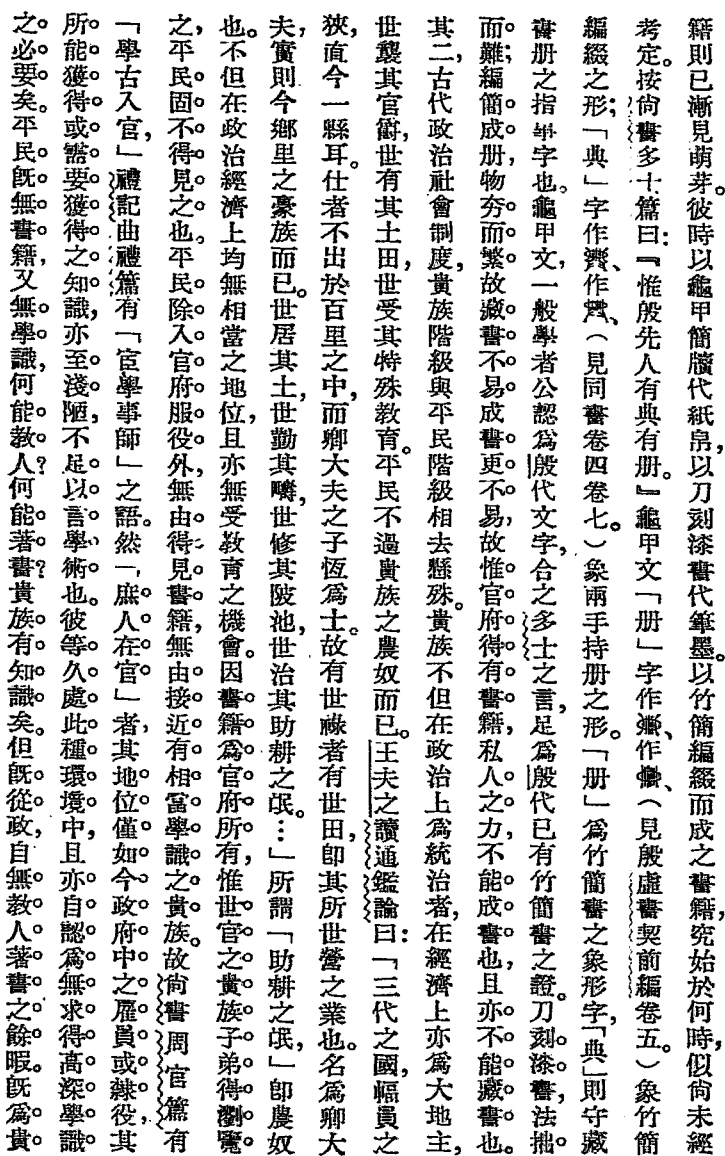 籍則已漸見萌芽。彼時以龜甲簡牘代紙帛,以刀刻漆書代筆墨。以竹簡編綴而成之書籍,究始於何時,似尚未經
考定。按尚書多士篇曰:『惟殷先人有典有册。』龜甲文「册」字作、作、(見殷虛書契前編卷五。)象竹簡
編綴之形;「典」字作、作、(見同書卷四卷七。)象兩手持册之形。「册」爲竹簡書之象形字,「典」則守藏
書册之指事字也。龜甲文,一般學者公認爲殷代文字,合之多士之言,足爲殷代已有竹簡書之證。刀刻漆書,法拙
而難;編簡成册,物夯而繁。故藏書不易,成書更不易,故惟官府得有書籍,私人之力,不能成書也,且亦不能藏書也。
其二,古代政治社會制度,貴族階級與平民階級相去懸殊。貴族不但在政治上爲統治者,在經濟上亦爲大地主,
世襲其官爵,世有其土田,世受其特殊教育。平民不過貴族之農奴而已。王夫之讀通鑑論曰:「三代之國,幅員之
狹,直今一縣耳。仕者不出於百里之中,而卿大夫之子恆爲士。故有世祿者有世田,即其所世營之業也。名爲卿大
夫,實則今鄉里之豪族而已。世居其土,世勤其疇,世修其陂池,世治其助耕之氓。…」所謂「助耕之氓,」即農奴
也。不但在政治經濟上均無相當之地位,且亦無受教育之機會。因書籍爲官府所有,惟世官之貴族子弟得瀏覽
之,平民固不得見之也。平民除入官府服役外,無由得見書籍,無由接近有相當學識之貴族。故尚書周官篇有
「學古入官,」禮記曲禮篇有「宦學事師」之語。然「庶人在官」者,其地位僅如今政府中之雇員或隸役,其
所能獲得或需要獲得之知識,亦至淺陋,不足以言學術也。彼等久處此種環境中,且亦自認爲無求得高深學識
之必要矣。平民既無書籍,又無學識,何能教人?何能著書?貴族有知識矣。但既從政,自無教人著書之餘暇。既爲貴